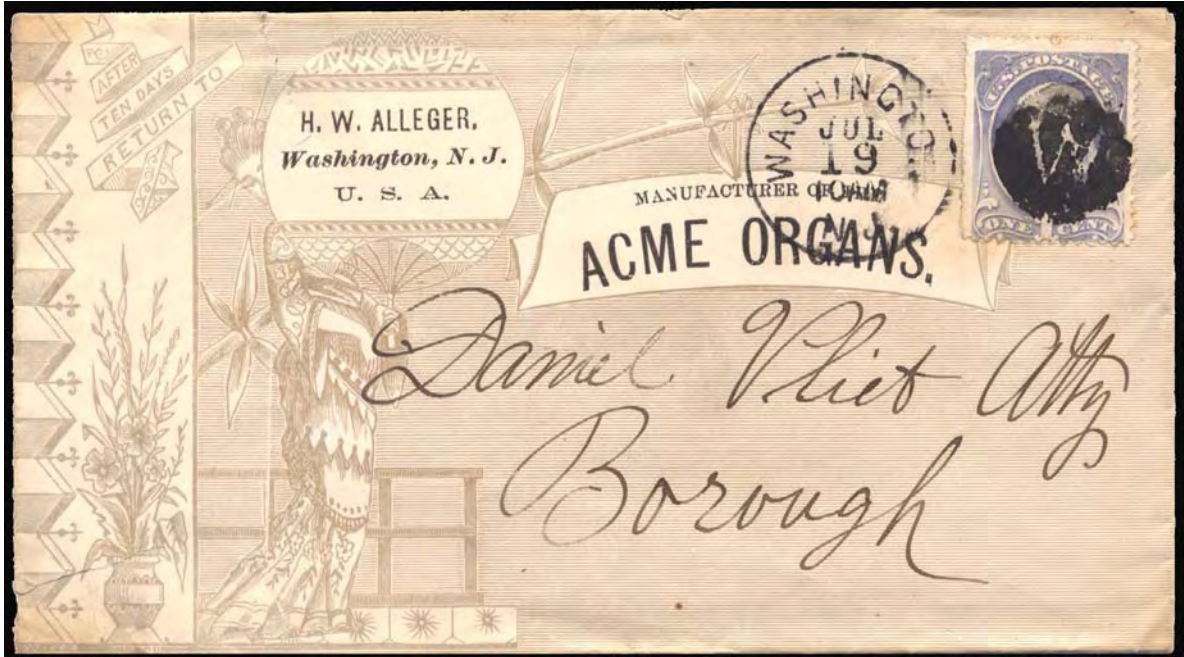 AFTER
TEN DAYS
RETURN TO
H. W. ALLEGER,
Washington, N. J.
U. S. A.
MANUFACTURER OF THE
ACME ORGANS.
WASHINGTON
JUL
19
10AM
N.J.
U.S. POSTAGE
ONE CENT
Daniel Vliet Atty
Borough